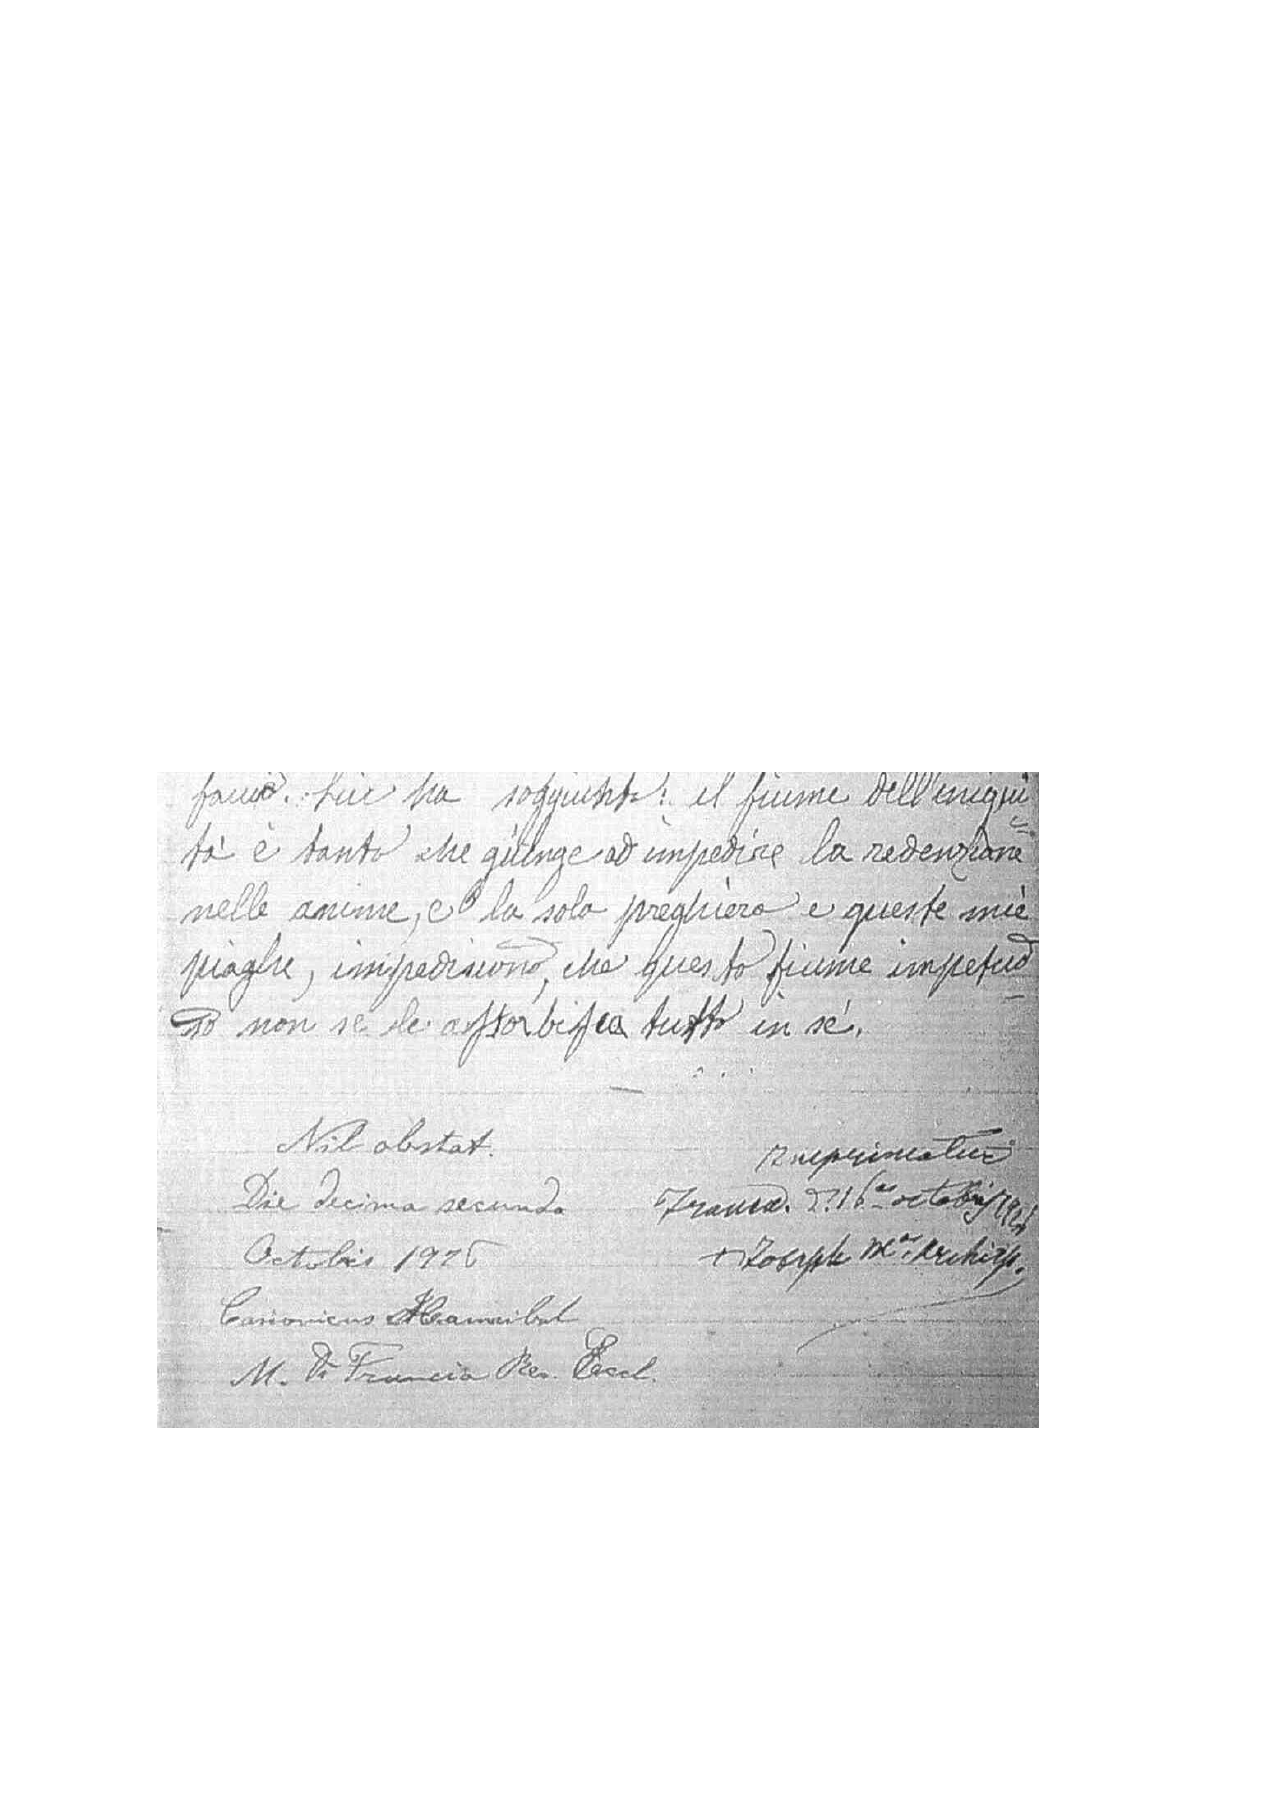 facció. Lui ha soggiunto: il fiume dell'iniqui
tà è tanto che giunge ad impedire la redenzione
nelle anime, e la sola preghiera e queste mie
piaghe, impediscono, che questo fiume impetuo
so non se le assorbisca tutto in sé.
Nil obstat.
Die decima secunda
Octobis 1926
Canonicus Hannibal
M. Di Francia Rev. Eccl.
Imprimatur
Trani d. 16 octobris 1926
+ Joseph Mª. Archiep.